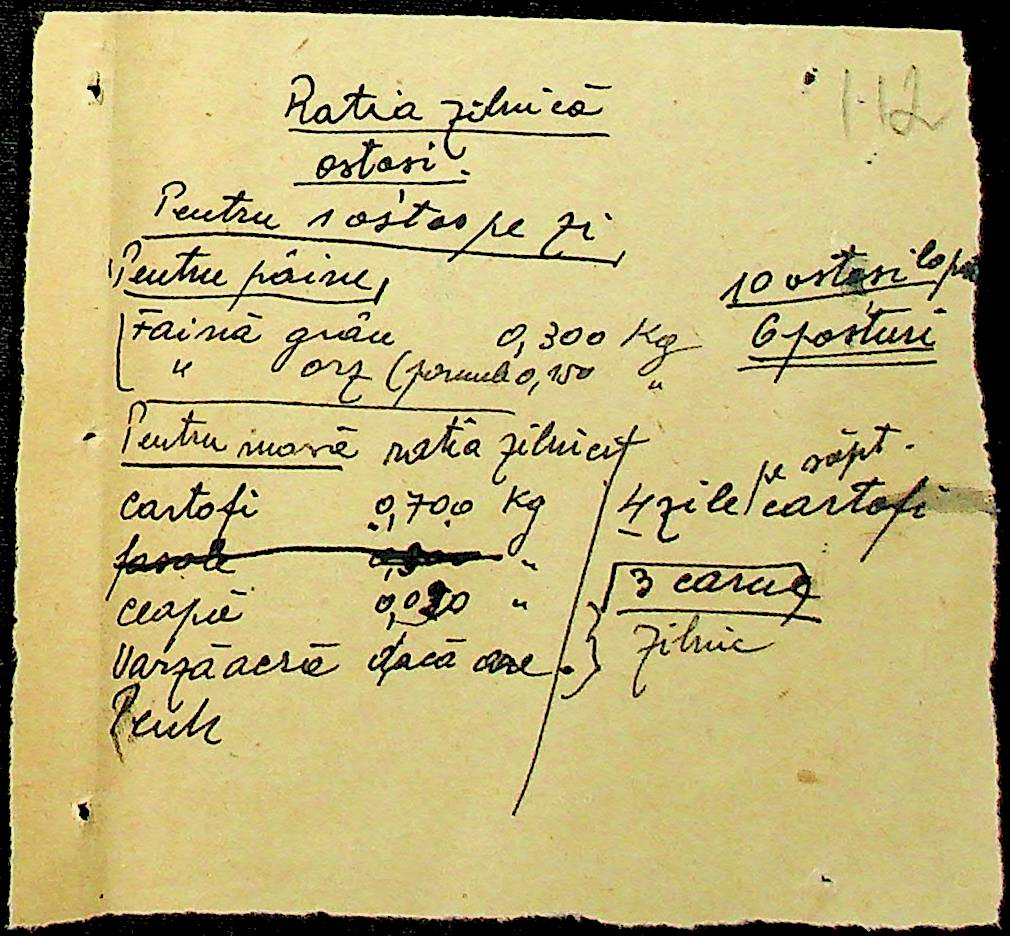 112
Ratia zilnică
ostasi.
Pentru 1 ostas pe zi
Pentru pâine,
10 ostasi la
6 posturi
Făină grâu 0,300 Kg
" orz ( 0,150 "
Pentru masă ratia zilnică
cartofi 0,700 Kg
4 zile pe săpt. cartofi
fasole "
3 carne
ceapă "
zilnic
Varză acră dacă are.